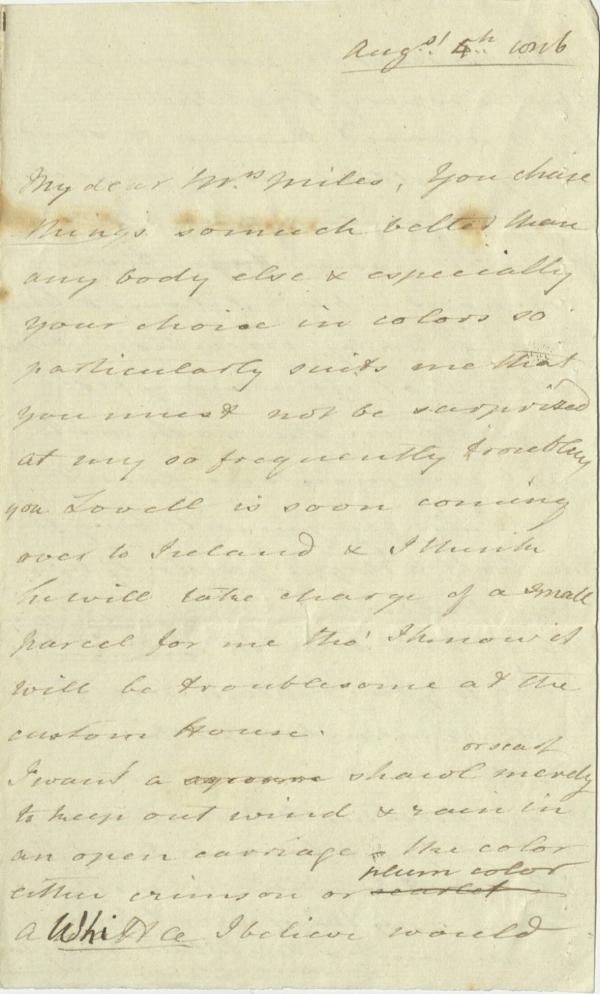 Augst. 4th
My dear Mrs. Miles, You chuse
things somuch better than
any body else & especially
your choice in colors so
particularly suits me that
you must not be surprized
at my so frequently troubling
you Lovell is soon coming
over to Ireland & I think
he will take charge of a small
parcel for me tho' I know it
will be troublesome at the
custom House.
or scarf
I want a shawl merely
to keep out wind & rain in
an open carriage – the color
plum color
either crimson or scarlet
a White I believe would